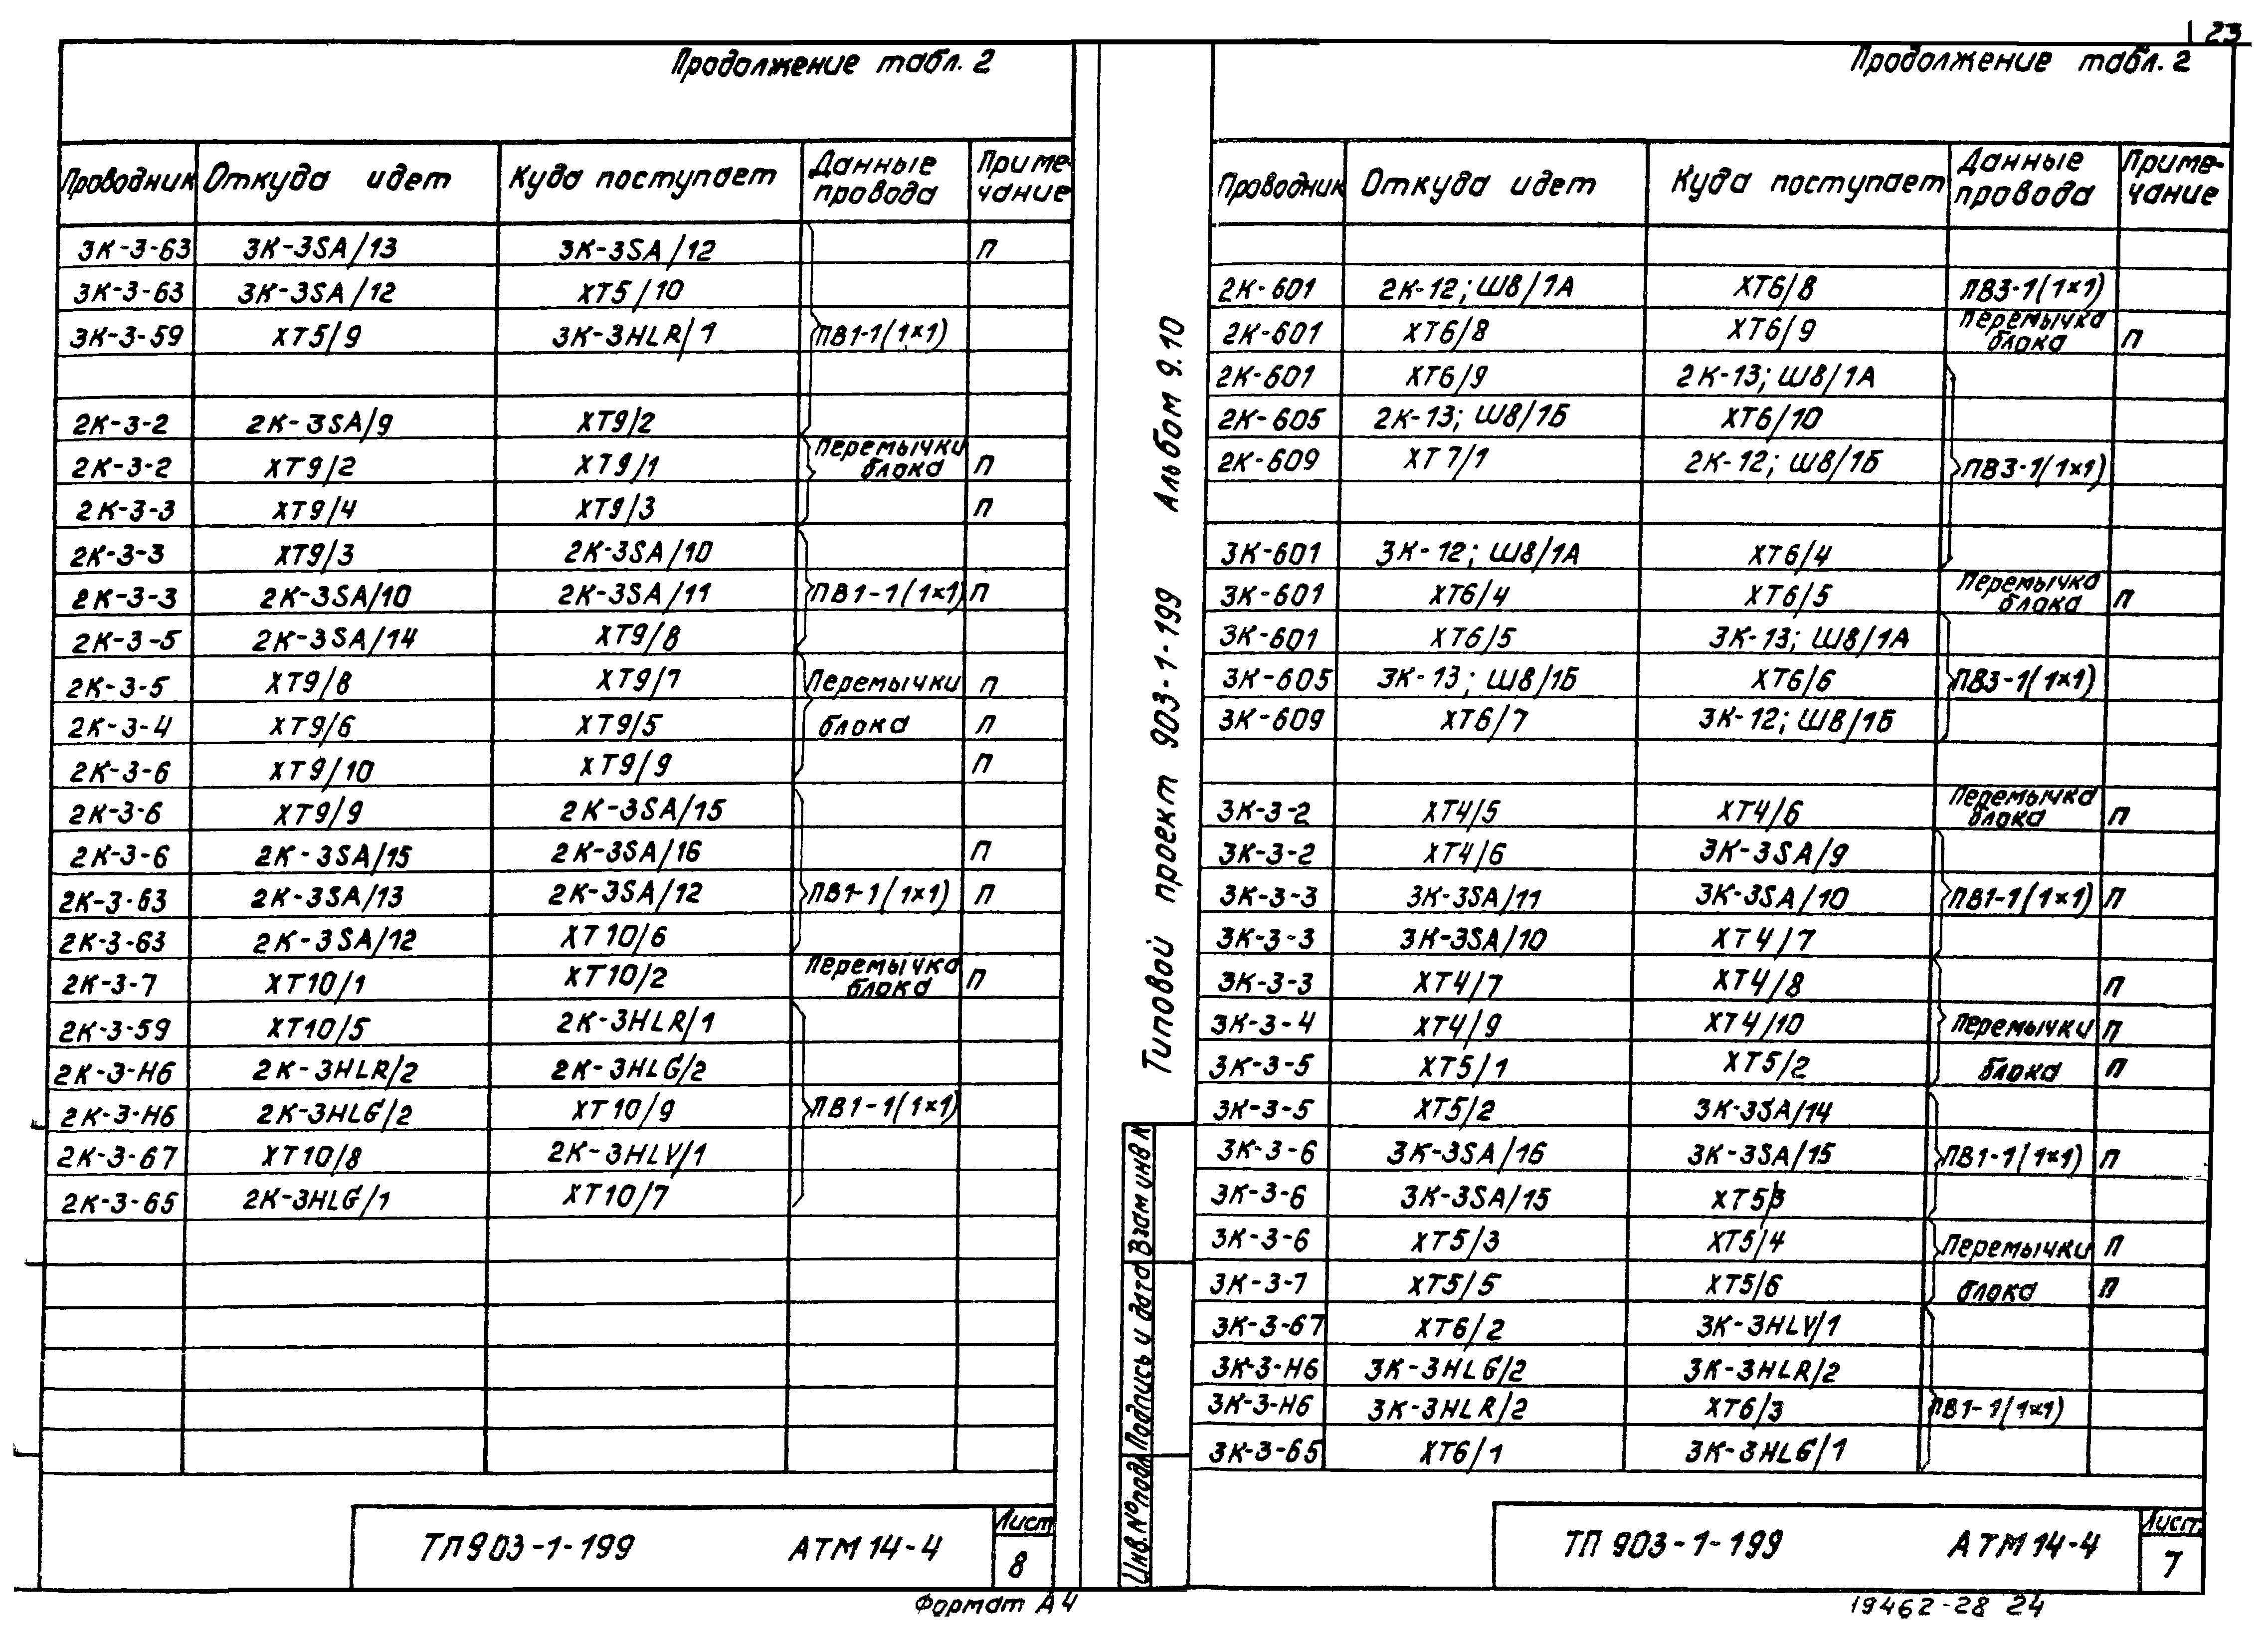 23
Продолжение табл. 2
Проводник Откуда идет Куда поступает Данные провода Примечание
3К-3-63 3К-3SA/13 3К-3SA/12 П
3К-3-63 3К-3SA/12 XT5/10
3К-3-59 XT5/9 3К-3HLR/1 ПВ1-1(1×1)
2К-3-2 2К-3SA/9 XT9/2
2К-3-2 XT9/2 XT9/1 Перемычки блока П
2К-3-3 XT9/4 XT9/3 П
2К-3-3 XT9/3 2К-3SA/10
2К-3-3 2К-3SA/10 2К-3SA/11 ПВ1-1(1×1) П
2К-3-5 2К-3SA/14 XT9/8
2К-3-5 XT9/8 XT9/7 Перемычки П
2К-3-4 XT9/6 XT9/5 блока П
2К-3-6 XT9/10 XT9/9 П
2К-3-6 XT9/9 2К-3SA/15
2К-3-6 2К-3SA/15 2К-3SA/16 П
2К-3-63 2К-3SA/13 2К-3SA/12 ПВ1-1(1×1) П
2К-3-63 2К-3SA/12 XT10/6
2К-3-7 XT10/1 XT10/2 Перемычка блока П
2К-3-59 XT10/5 2К-3HLR/1
2К-3-Н6 2К-3HLR/2 2К-3HLG/2
2К-3-Н6 2К-3HLG/2 XT10/9 ПВ1-1(1×1)
2К-3-67 XT10/8 2К-3HLV/1
2К-3-65 2К-3HLG/1 XT10/7
ТП903-1-199 АТМ14-4 Лист 8
Формат А4
Типовой проект 903-1-199 Альбом 9.10
Взам инв N
Подпись и дата
Инв.№подл
Продолжение табл. 2
Проводник Откуда идет Куда поступает Данные провода Примечание
2К-601 2К-12; Ш8/1А XT6/8 ПВ3-1(1×1)
2К-601 XT6/8 XT6/9 Перемычка блока П
2К-601 XT6/9 2К-13; Ш8/1А
2К-605 2К-13; Ш8/1Б XT6/10
2К-609 XT7/1 2К-12; Ш8/1Б ПВ3-1(1×1)
3К-601 3К-12; Ш8/1А XT6/4
3К-601 XT6/4 XT6/5 Перемычка блока П
3К-601 XT6/5 3К-13; Ш8/1А
3К-605 3К-13; Ш8/1Б XT6/6 ПВ3-1(1×1)
3К-609 XT6/7 3К-12; Ш8/1Б
3К-3-2 XT4/5 XT4/6 Перемычка блока П
3К-3-2 XT4/6 3К-3SA/9
3К-3-3 3К-3SA/11 3К-3SA/10 ПВ1-1(1×1) П
3К-3-3 3К-3SA/10 XT4/7
3К-3-3 XT4/7 XT4/8 П
3К-3-4 XT4/9 XT4/10 Перемычки П
3К-3-5 XT5/1 XT5/2 блока П
3К-3-5 XT5/2 3К-3SA/14
3К-3-6 3К-3SA/16 3К-3SA/15 ПВ1-1(1×1) П
3К-3-6 3К-3SA/15 XT5/3
3К-3-6 XT5/3 XT5/4 Перемычки П
3К-3-7 XT5/5 XT5/6 блока П
3К-3-67 XT6/2 3К-3HLV/1
3К-3-Н6 3К-3HLG/2 3К-3HLR/2
3К-3-Н6 3К-3HLR/2 XT6/3 ПВ1-1(1×1)
3К-3-65 XT6/1 3К-3HLG/1
ТП 903-1-199 АТМ14-4 Лист 7
19462-28 24